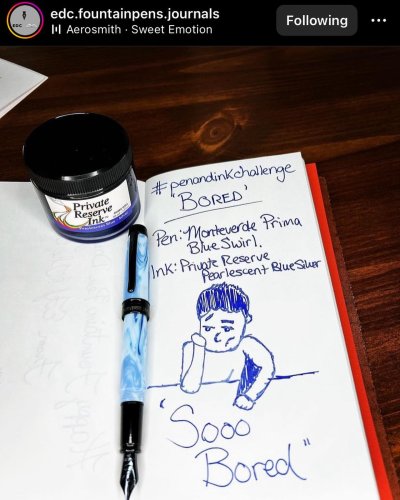 edc.fountainpens.journals
Aerosmith · Sweet Emotion
Following
EDC
Private
Reserve
Ink
#penandinkchallenge
'BORED'
Pen: Monteverde Prima
Blue Swirl.
Ink: Private Reserve
Pearlescent Blue Silver
"Sooo
Bored"